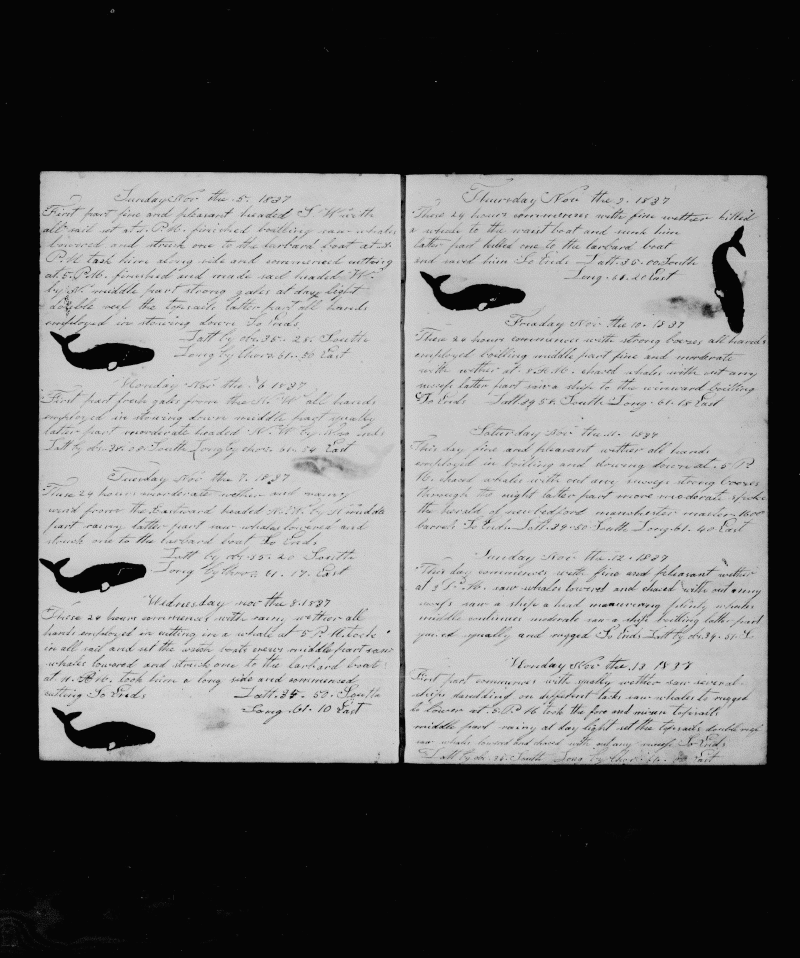 Sunday Nov the 5. 1837
First part fine and pleasant headed N W with
all sail set at P.M. finished boilling saw whales
lowered and struck one to the larbard boat at
P.M took him along side and commenced cutting
at 5 P.M. finished and made sail headed W
by middle part strong gales at day light
double reef the topsails latter part all hands
employed in stowing down So Ends
Latt by ob. 35 28 South
Long by Chor. 61. 50 East
Monday Nov the 6 1837
First part fresh gales from the N. W all hands
employed in stowing down middle part squally
latter part morderate headed N. W by So ends
Latt by ob. South Long by chor. 61. 54 East
Tuesday Nov the 7. 1837
These 24 hours morderate wether and rainy
wind from the Eastward headed N. W. by N middle
part rainy latter part saw whales lowered and
struck one to the larbard boat So Ends
Latt by ob. 20 South
Long by Chor. 17. East
Wednesday nov the 8. 1837
These 24 hours commences with rainy wether all
hands employed in cutting in a whale at 5 P M took
in all sail and set the watch middle part saw
whales lowered and struck one to the larbard boat
at took him a long side and commenced
cutting So Ends Latt. 35 - 50 South
Long. 61. 10 East
Thursday Nov the 9. 1837
These 24 hours commences with fine wether killed
a whale to the waist boat and sunk him
latter part killed one to the larbard boat
and saved him So Ends Latt. 35. 00 South
Long. 20 East
Friaday Nov the 10. 1837
These 24 hours commences with strong breezes all hands
employed boilling middle part fine and moderate
with wether at 8 A.M. chased whales with out any
sucsess latter part saw a ship to the winward boilling
So Ends Latt 58. South Long. 61. 18 East
Saturday Nov the 11. 1837
This day fine and pleasant wether all hands
employed in boilling and stowing down at 5 P.
M. chased whales with out any sucsess strong breezes
through the night latter part more moderate spoke
the herald of newbedford manchester master 1500
barrels So Ends Latt. 34. 50 South Long. 61. 40 East
Sunday Nov the 12. 1837
This day commences with fine and pleasant wether
at 3 P. M. saw whales lowered and chased with out any
sucsess saw a ship a head whales
middle continues moderate saw a ship boilling latter part
squally and rugged So Ends Latt by ob. 34. 51 S.
Monday Nov the 13 1837
First part commences with squally wether saw several
ships on different tacks saw whales to rugged
to lower at 5 P. M took the fore and mizen topsails
middle part rainy at day light set the topsails double reef
saw whales lowered and chased with out any sucsess So Ends
Latt by ob. 34. South Long by chor. 61. East